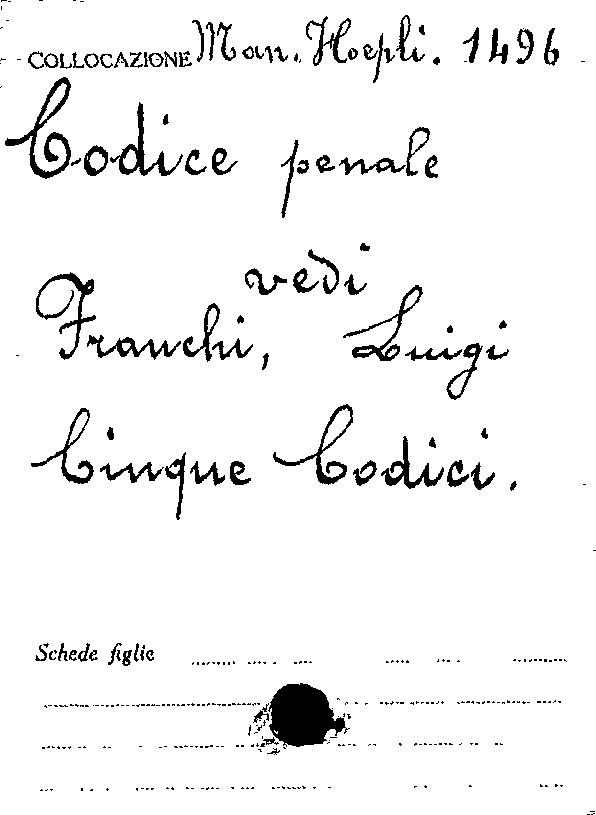 COLLOCAZIONE Man. Hoepli. 1496
Codice penale
vedi
Franchi, Luigi
Cinque Codici.
Schede figlie